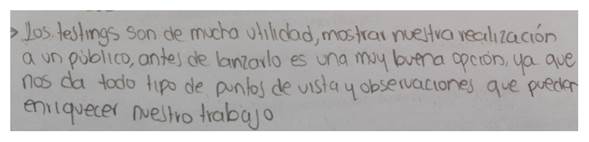 > Los testings son de mucha utilidad, mostrar nuestra realización
a un público, antes de lanzarlo es una muy buena opción, ya que
nos da todo tipo de puntos de vista y observaciones que puedan
enriquecer nuestro trabajo